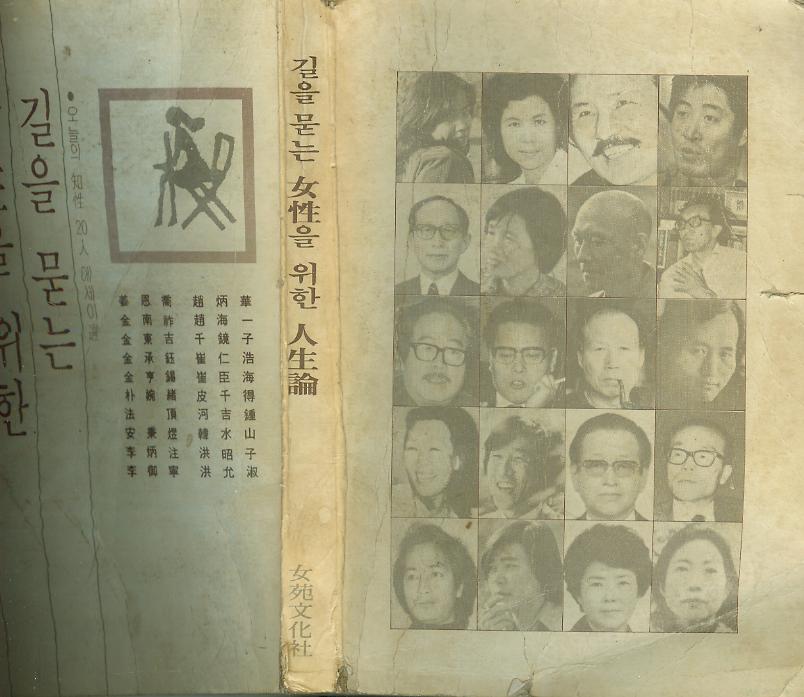 ●오늘의 知性 20人 에세이選
길을 묻는
을 위한
姜恩喬 趙炳華
金南祚 趙海一
金東吉 千鏡子
金承鈺 崔仁浩
金亨錫 崔臣海
朴婉緖 皮千得
法 頂 河吉鍾
安秉煜 韓水山
李炳注 洪昭子
李御寧 洪允淑
길을 묻는 女性을 위한 人生論
女苑文化社